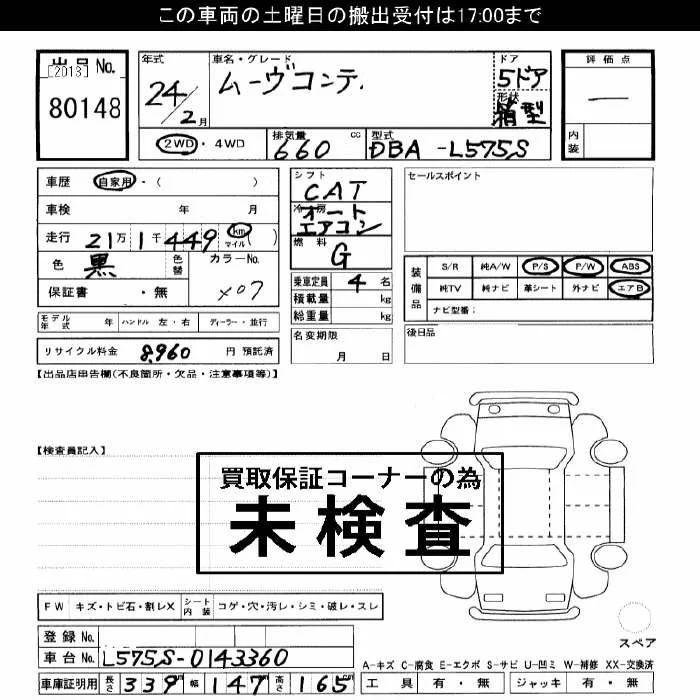 この車両の土曜日の搬出受付は17:00まで
出品No.
[2013]
80148
年式
24/2月
車名・グレード
ムーヴコンテ
ドア
5ドア
形状
箱型
評価点
―
内装
2WD・4WD
排気量 cc
660
型式
DBA-L575S
車歴 自家用・( )
車検 年 月
走行 21万1千449 km マイル ( )
色 黒
色替
カラーNo.
X07
保証書 ・無
シフト
CAT
冷房
オートエアコン
燃料
G
乗車定員 4名
積載量 kg
総重量 kg
セールスポイント
装備品
S/R 純A/W P/S P/W ABS
純TV 純ナビ 革シート 外ナビ エアB
ナビ型番:
モデル年式 年 ハンドル 左・右 ディーラー・並行
名変期限
月 日
後日品
リサイクル料金 8,960 円 預託済
【出品店申告欄(不良箇所・欠品・注意事項等)】
【検査員記入】
買取保証コーナーの為
未検査
FW キズ・トビ石・割レX シート内装 コゲ・穴・汚レ・シミ・破レ・スレ
登録No.
車台No. L575S-0143360
スペア
A-キズ C-腐食 E-エクボ S-サビ U-凹ミ W-補修 XX-交換済
車庫証明用 長さ 339cm 幅 147cm 高さ 165cm
工具 有・無 ジャッキ 有・無